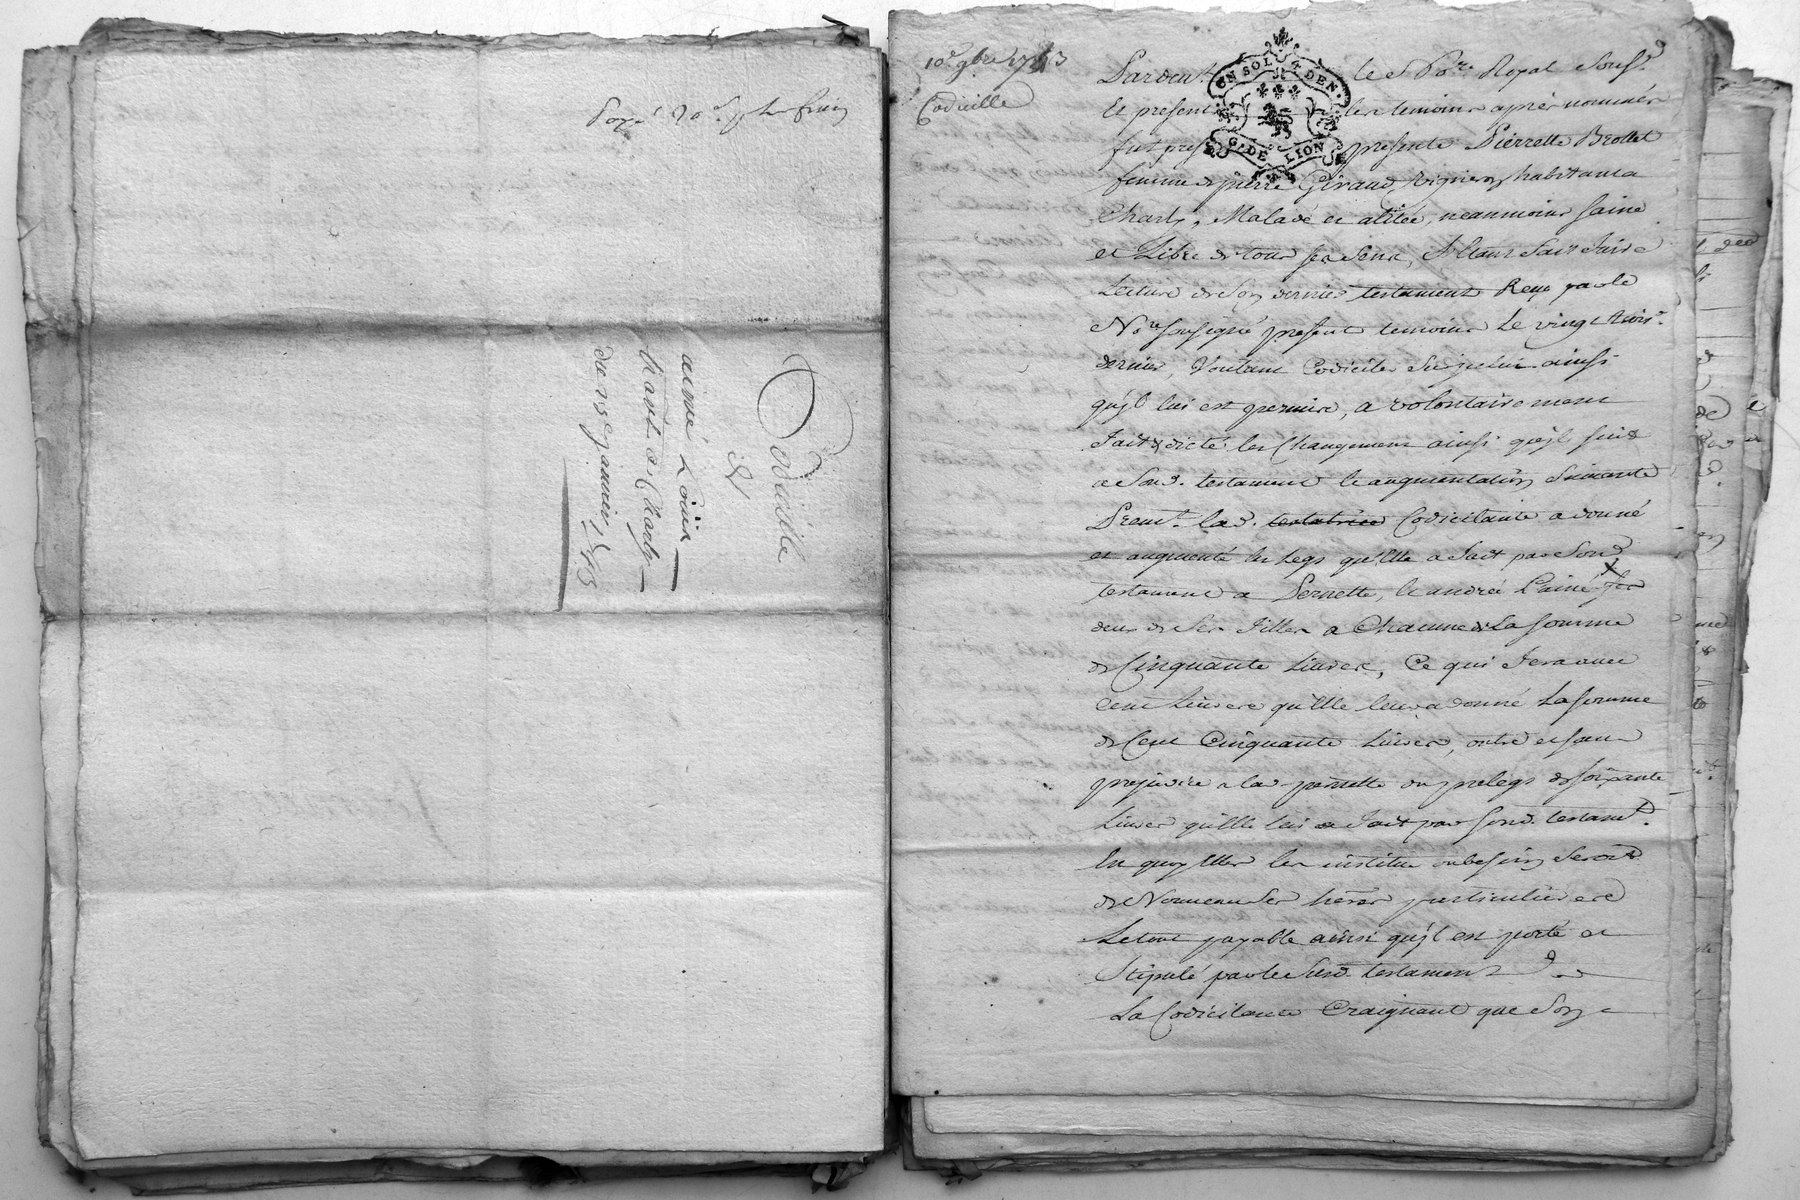 payé 20s
Codicille
de
aimé Loüis
habt a Charly
du 15e janvier 1743
10e 9bre 1743
Codicille
UN SOL 4 DEN.
G. DE LION
Pardevt le No.re Royal sousst.
Et present les temoins après nommés
fut presente Pierrette Brollet
femme de pierre Giraud, vigneron habitant a
Charly, Malade et alitée, neanmoins saine
et Libre de tous ses sens, Alaant fait faire
Lecture de son dernier testament Reçu par le
No.re sousigné present temoins le vingt trois
dernier, Voulant Codiciler sur icelui ainsi
qu'jl lui est permis, a volontairement
fait & dicté les Changemens ainsi qu'jl suit
a Sond. testament & augmentation Suivante
Premt. lad. testatrice Codicilante a donné
et augmenté les legs qu'Elle a fait par Sond
testament a Pernette, & andrée L'ainé
deux de Ses filles a Chacune de La somme
de Cinquante Livres, Ce qui fera avec
Cent Livres qu'Elle leur a donné La somme
de Cent Cinquante Livres, outre et sans
prejudice a lad. pernette du prelegs de soixante
Livres qu'Elle lui a fait par sond. testamt.
En quoy Elle les institue au besoin Seroit
de Nouveau Ses heres particulieres
Le tout payable ainsi qu'jl est porté et
Stipulé par le Susd. testament
La Codicilante Craignant que Son